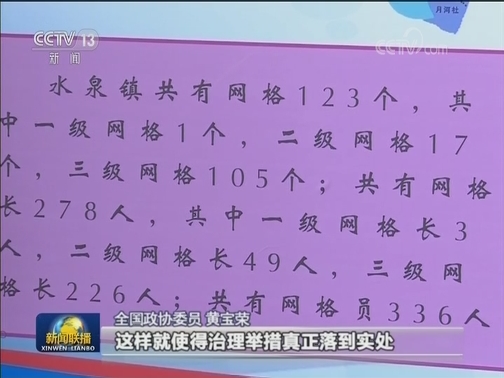 CCTV 13
新闻
月河社
央视网
cctv.com
水泉镇共有网格123个，其
中一级网格1个，二级网格17
个，三级网格105个；共有网格
长278人，其中一级网格长3
人，二级网格长49人，三级网
格长226人；共有网格员336人
全国政协委员 黄宝荣
新闻联播
XINWEN LIANBO
这样就使得治理举措真正落到实处